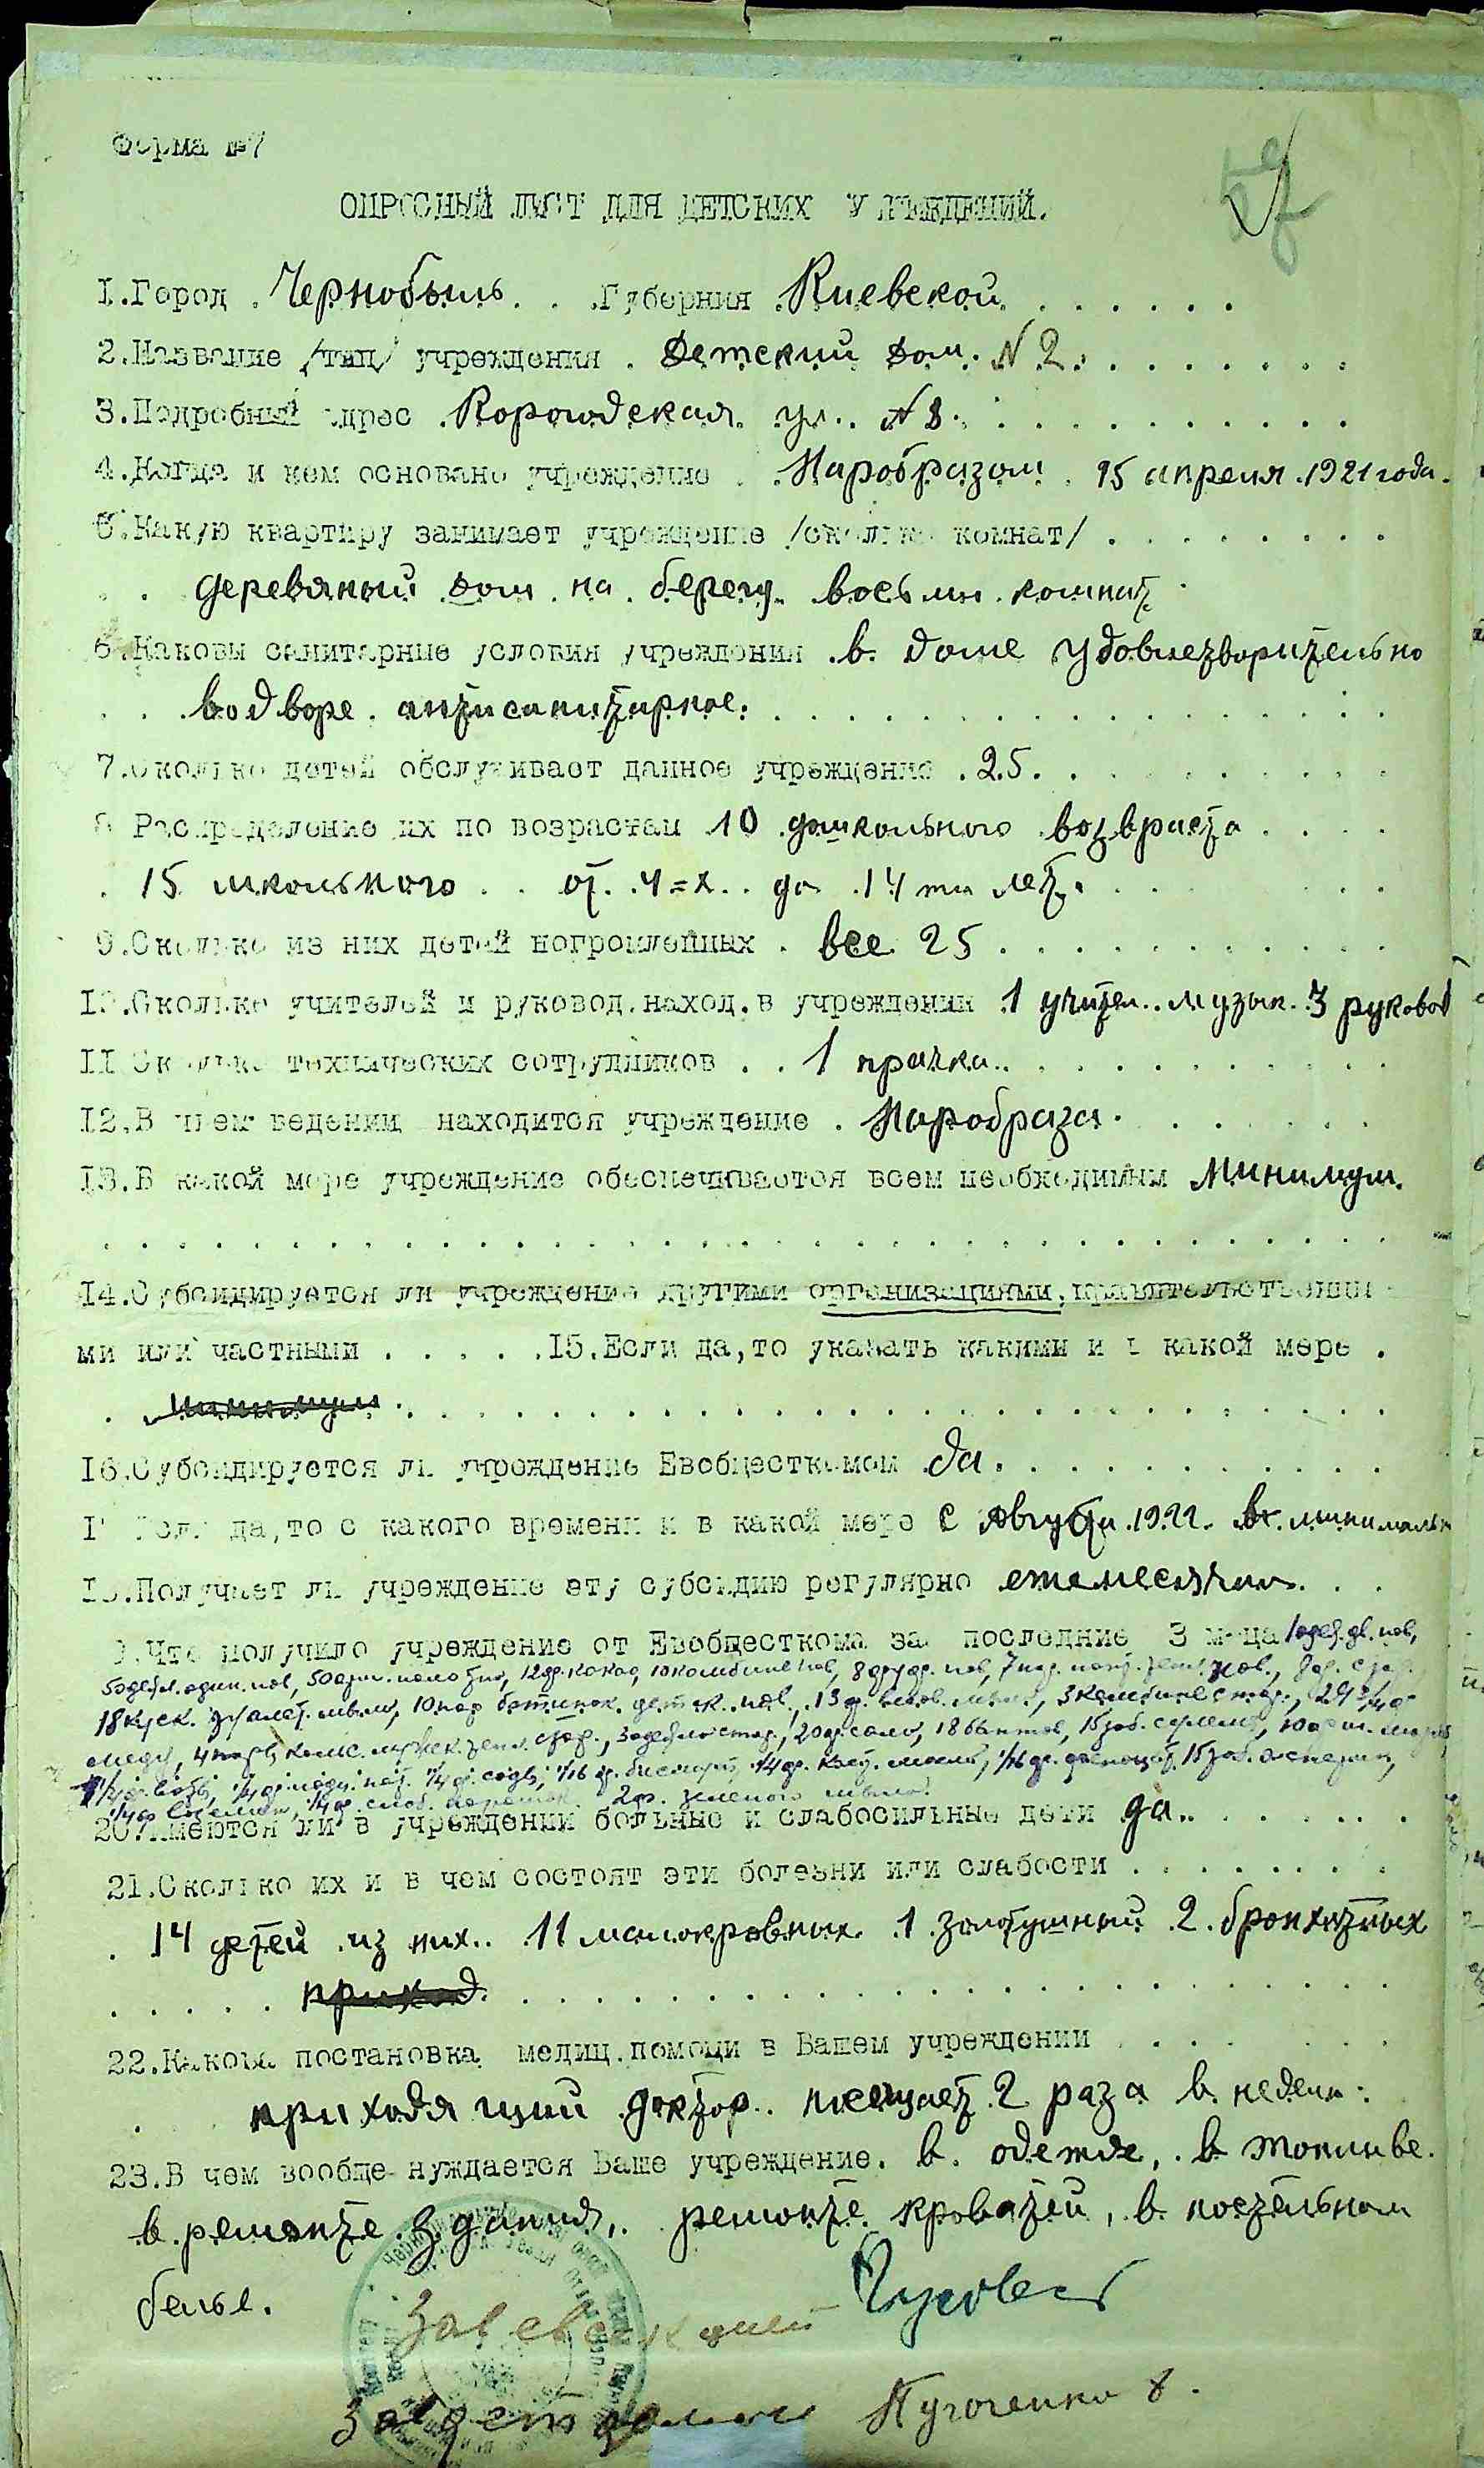 Форма №7
ОПРОСНЫЙ ЛИСТ ДЛЯ ДЕТСКИХ УЧРЕЖДЕНИЙ.
1.Город Чернобыль Губерния Киевской
2.Название /тип/ учреждения Детский дом N 2.
3.Подробный адрес Корогодская ул. N 8.
4.Когда и кем основано учреждение Наробразом 15 апреля 1921 года.
5.Какую квартиру занимает учреждение /сколько комнат/
деревяный дом на берегу восьми комнат
6.Каковы санитарные условия учреждения в доме удовлетворительно
во дворе антисанитарное.
7.Сколько детей обслуживает данное учреждение 25.
8 Распределение их по возрастам 10 дошкольного возвраста
15 школьного от 4=х до 14 ти лет.
9.Сколько из них детей погромленных все 25
10.Сколько учителей и руковод.наход.в учреждении 1 учител. музык. 3 руковод
11 Сколько технических сотрудников 1 прачка.
12.В чьем ведении находится учреждение Наробраза.
13.В какой мере учреждение обеспечивается всем необходимым Минимум.
14.Субсидируется ли учреждение другими организациями, правительственны
ми или частными 15.Если да,то указать какими и в какой мере
минимум
16.Субсидируется ли учреждение Евобщесткомом да.
17 Если да,то с какого времени и в какой мере С Августа 1922. в минимальн
18.Получает ли учреждение эту субсидию регулярно ежемесячно.
19.Что получило учреждение от Евобщесткома за последние 3 м-ца 1 одея. дв. нов,
50 арш. полотна, 12 ф. какао, 10 комбине нов,
18 куск. туалет. мыла, 10 пар ботинок детск. нов.
меду, 20 ф. сало, 18 бинтов,
1/4 ф. соды,
2 ф. зеленого мыла.
20.Имеются ли в учреждении больные и слабосильные дети да.
21.Сколько их и в чем состоят эти болезни или слабости
14 детей из них 11 малокровных 1 золотушный 2 бронхитных
приход
22.Какова постановка медиц.помощи в Вашем учреждении
приходящий доктор посещает 2 раза в недел.
23.В чем вообще нуждается Ваше учреждение. в одежде, в топливе.
в ремонте здания, ремонте кроватей, в постельном
белье.
Зав евсекцией
Завдетдомом